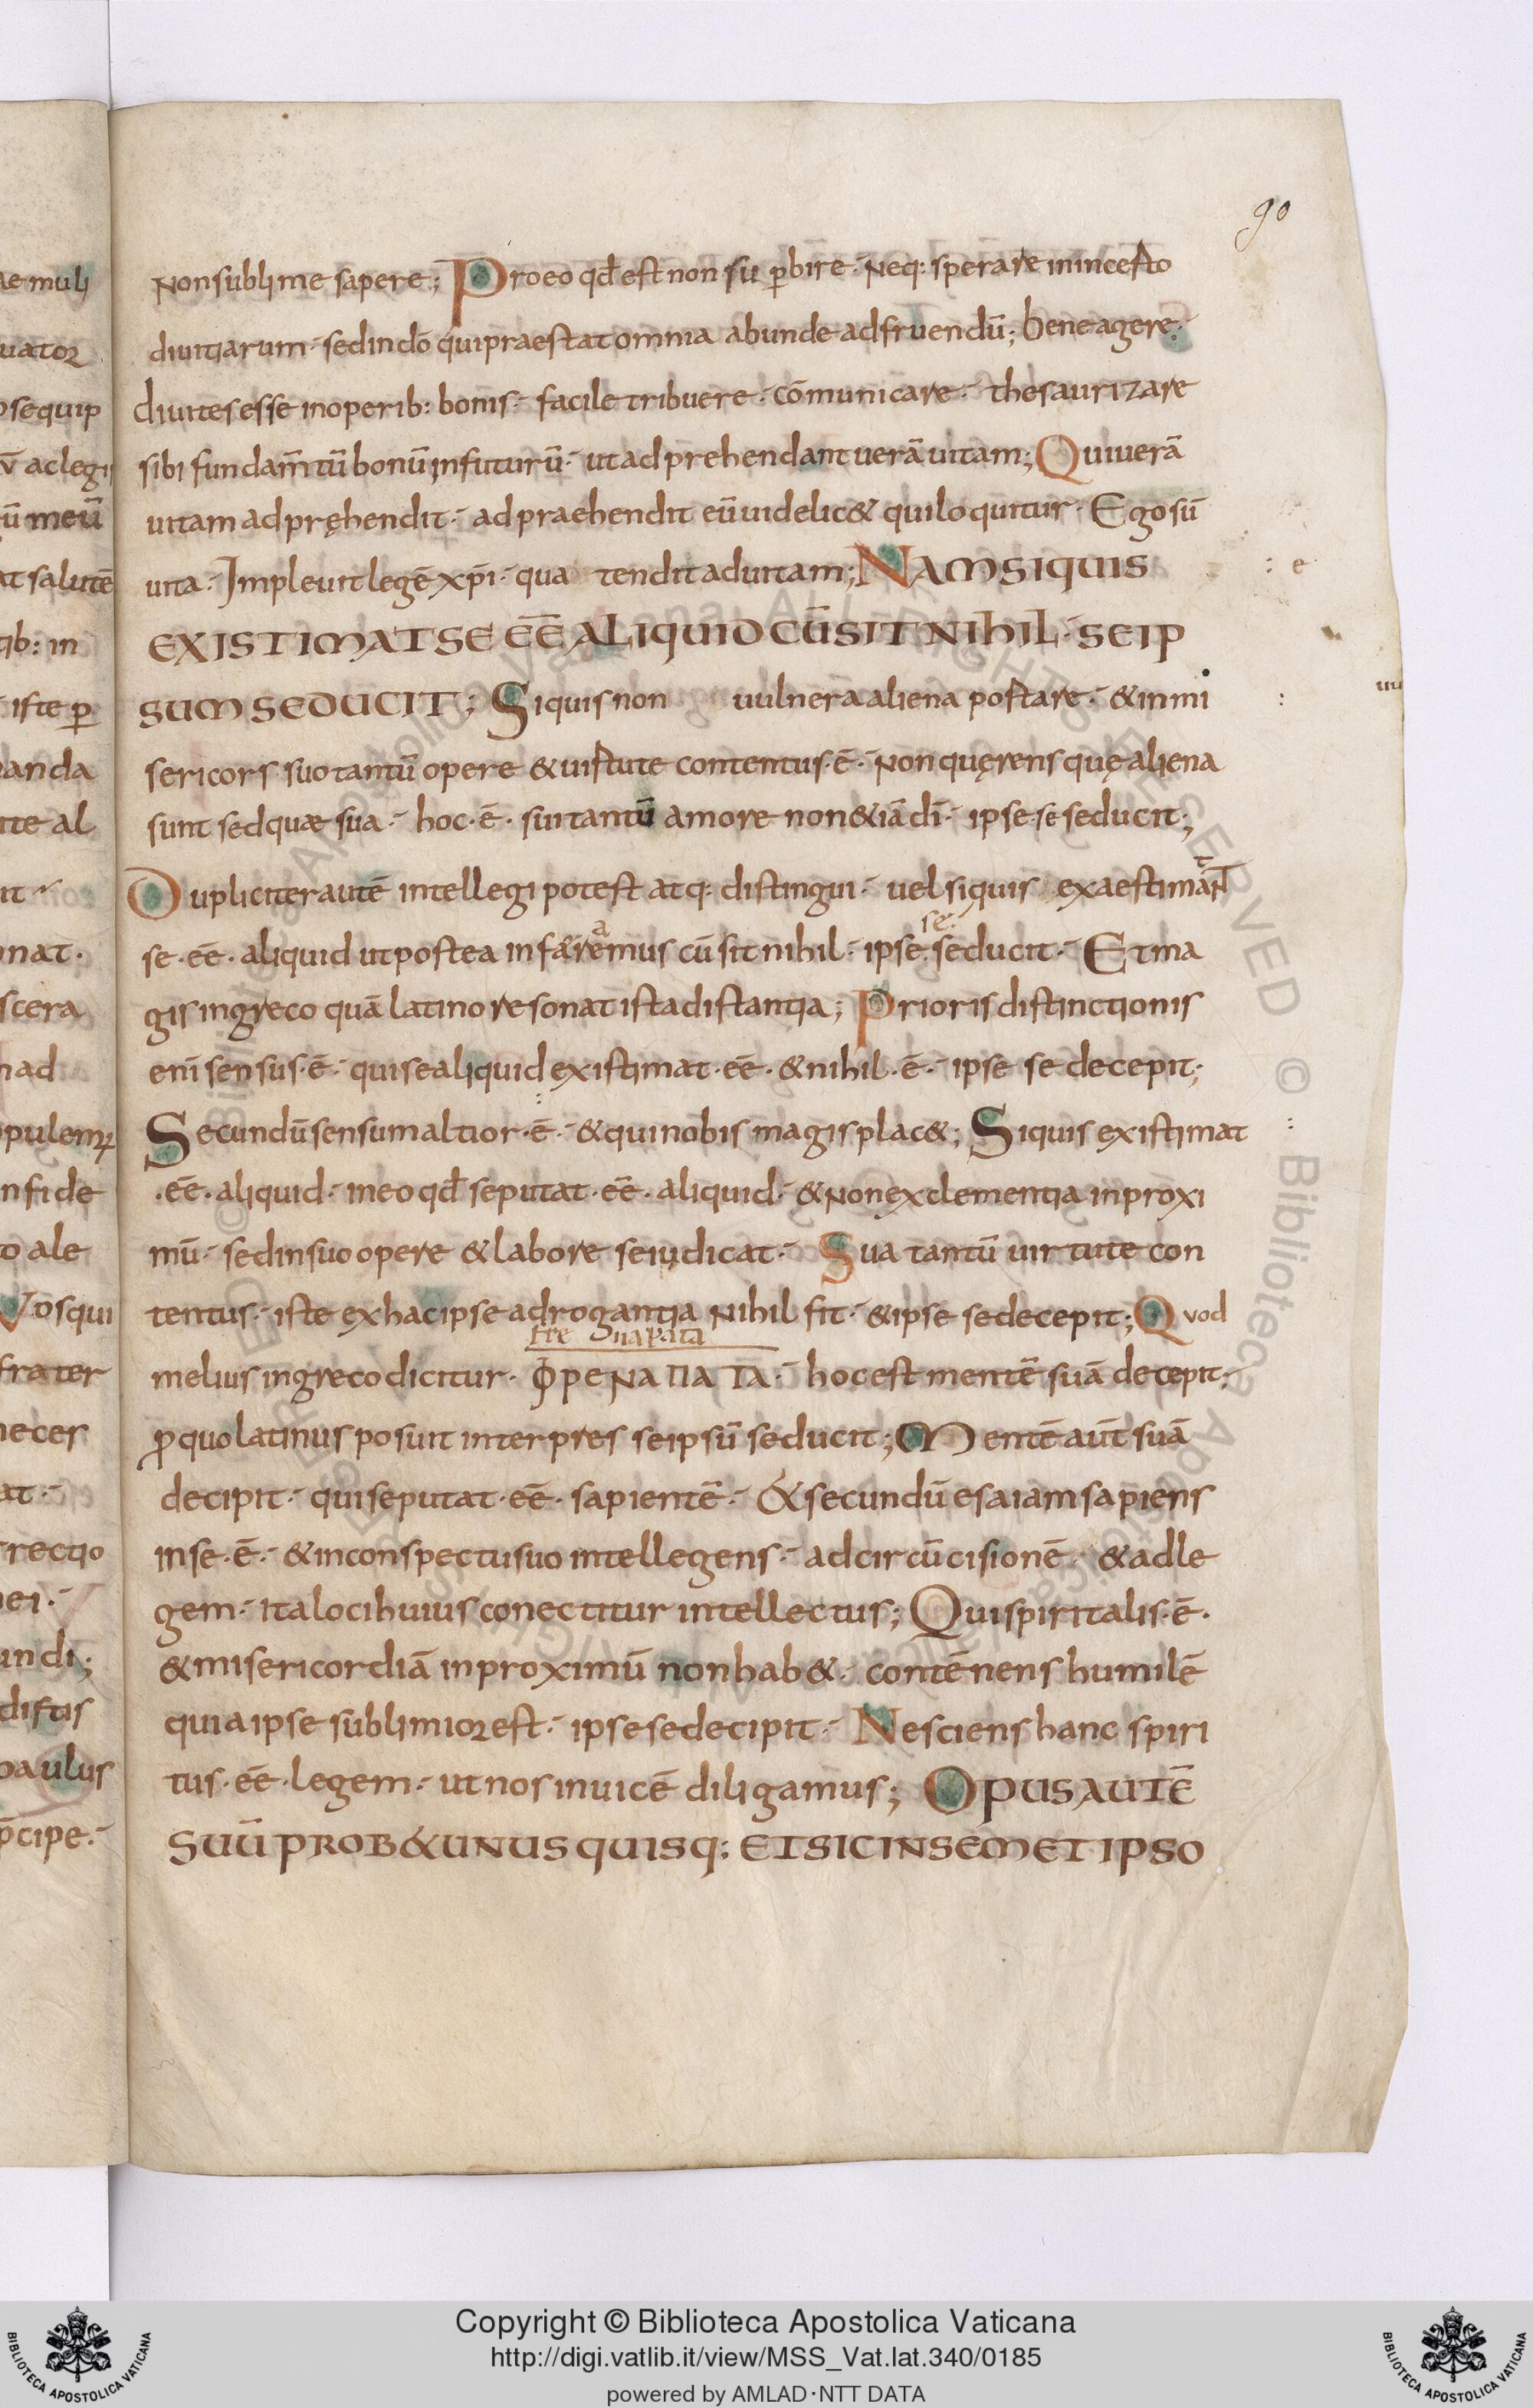 90
Non sublime sapere; Pro eo qd̄ est non su ꝑbire· Neq: sperare in incerto
diuitiarum· sed in dō qui praestat omnia abunde ad fruendū; bene agere·
diuites esse in operib: bonis· facile tribuere· cōmunicare· thesaurizare
sibi fundam̄tū bonū in futurū· ut adprehendant uerā uitam; Qui uerā
uitam adpręhendit· adpraehendit eū uidelic& qui loquitur· Ego sū
uita· Impleuit legē xp̄i· qua tendit ad uitam; NAM SI QUIS
EXISTIMAT SE EĒ ALIQUID CŪ SIT NIHIL· SEIP
SUM SEDUCIT; Si quis non uulnera aliena portare· & inmi
sericors suo tantū opere & uirtute contentus·ē· Non quęrens quę aliena
sunt sed quæ sua· hoc·ē· sui tantū amore non &iā dī· ipse se seducit;
Dupliciter autē intellegi potest atq: distingui· uel si quis exaestimat
se·eē· aliquid ut postea inferamus cū sit nihil· ipse se seducit· Et ma
gis in greco quā latino resonat ista distantia; Prioris distinctionis
enī sensus·ē· qui se aliquid existimat·eē· & nihil·ē· ipse se decepit;
Secundū sensum altior·ē· & qui nobis magis plac&; Si quis existimat
·eē· aliquid· in eo qd̄ se putat·eē· aliquid· & Non ex clementia in proxi
mū· sed in suo opere & labore se iudicat· Sua tantū uirtute con
tentus· iste ex hac ipse adrogantia Nihil fit· & ipse se decepit; Quod
fre Napata
melius in greco dicitur· ΦΡΕΝΑΠΑΤΑ· hoc est mentē suā decepit·
ꝓ quo latinus posuit interpres seipsū seducit; Mentē aūt suā
decipit· qui se putat·eē· sapientē· & secundū esaiam sapiens
in se·ē· & in conspectu suo intellegens· ad circūcisionē· & ad le
gem· ita loci huius conectitur intellectus; Qui spiritalis·ē·
& misericordiā in proximū non hab&· contēnens humilē
quia ipse sublimior est· ipse se decipit· Nesciens hanc spiri
tus·eē·legem· ut nos inuicē diligamus; OPUS AUTĒ
SUŪ PROB& UNUSQUISQ: ET SIC IN SEMET IPSO
Copyright © Biblioteca Apostolica Vaticana
http://digi.vatlib.it/view/MSS_Vat.lat.340/0185
powered by AMLAD·NTT DATA
BIBLIOTECA APOSTOLICA VATICANA
BIBLIOTECA APOSTOLICA VATICANA